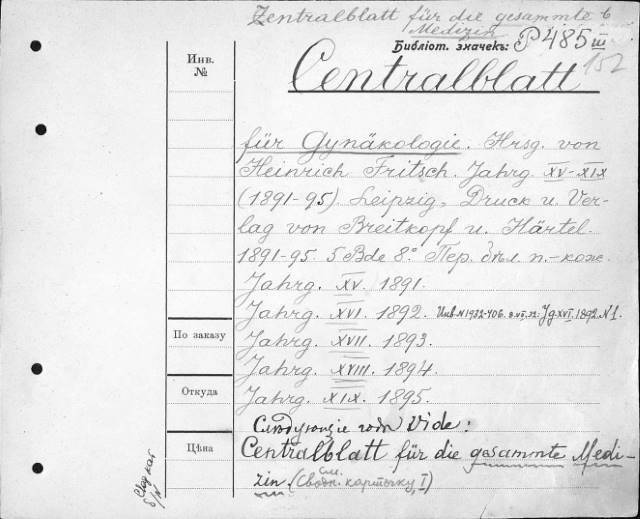 Zentralblatt für die gesammte
Medizin
Библіот. значекъ: P 485 III
152
Инв.
№
Centralblatt
für Gynäkologie. Hrsg. von
Heinrich Fritsch. Jahrg. XV-XIX
(1891-95). Leipzig, Druck u. Ver-
lag von Breitkopf u. Härtel.
1891-95. 5 Bde 8° Пер. бѣл. п.-кож.
Jahrg. XV. 1891.
Jahrg. XVI. 1892. Инв. N 1932-406. Jg XVI. 1892. N 1.
По заказу
Jahrg. XVII. 1893.
Jahrg. XVIII. 1894.
Откуда
Jahrg. XIX. 1895.
Слѣдующіе годы Vide:
Цѣна
Centralblatt für die gesammte Medi-
zin. (См. Сводн. карточку I)